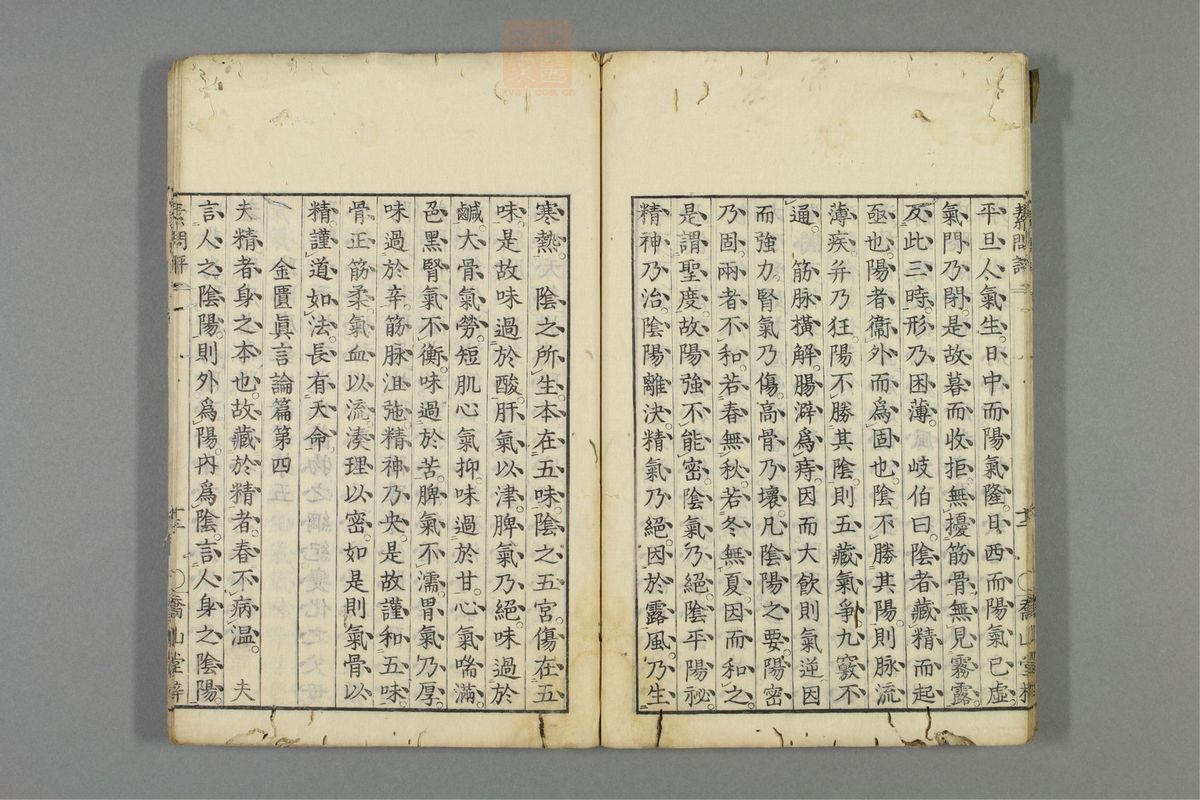 平旦人氣生日中而陽氣隆日西而陽氣已虛
氣門乃閉是故暮而收拒無擾筋骨無見霧露
反此三時形乃困薄 岐伯曰陰者藏精而起
亟也陽者衞外而爲固也陰不勝其陽則脉流
薄疾并乃狂陽不勝其陰則五藏氣爭九竅不
通 筋脉橫解腸澼爲痔因而大飲則氣逆因
而強力腎氣乃傷高骨乃壞凡陰陽之要陽密
乃固兩者不和若春無秋若冬無夏因而和之
是謂聖度故陽強不能密陰氣乃絕陰平陽祕
精神乃治陰陽離決精氣乃絕因於露風乃生
寒熱 陰之所生本在五味陰之五宮傷在五
味是故味過於酸肝氣以津脾氣乃絕味過於
鹹大骨氣勞短肌心氣抑味過於甘心氣喘滿
色黑腎氣不衡味過於苦脾氣不濡胃氣乃厚
味過於辛筋脉沮弛精神乃央是故謹和五味
骨正筋柔氣血以流湊理以密如是則氣骨以
精謹道如法長有天命
金匱眞言論篇第四
夫精者身之本也故藏於精者春不病溫 夫
言人之陰陽則外爲陽內爲陰言人身之陰陽